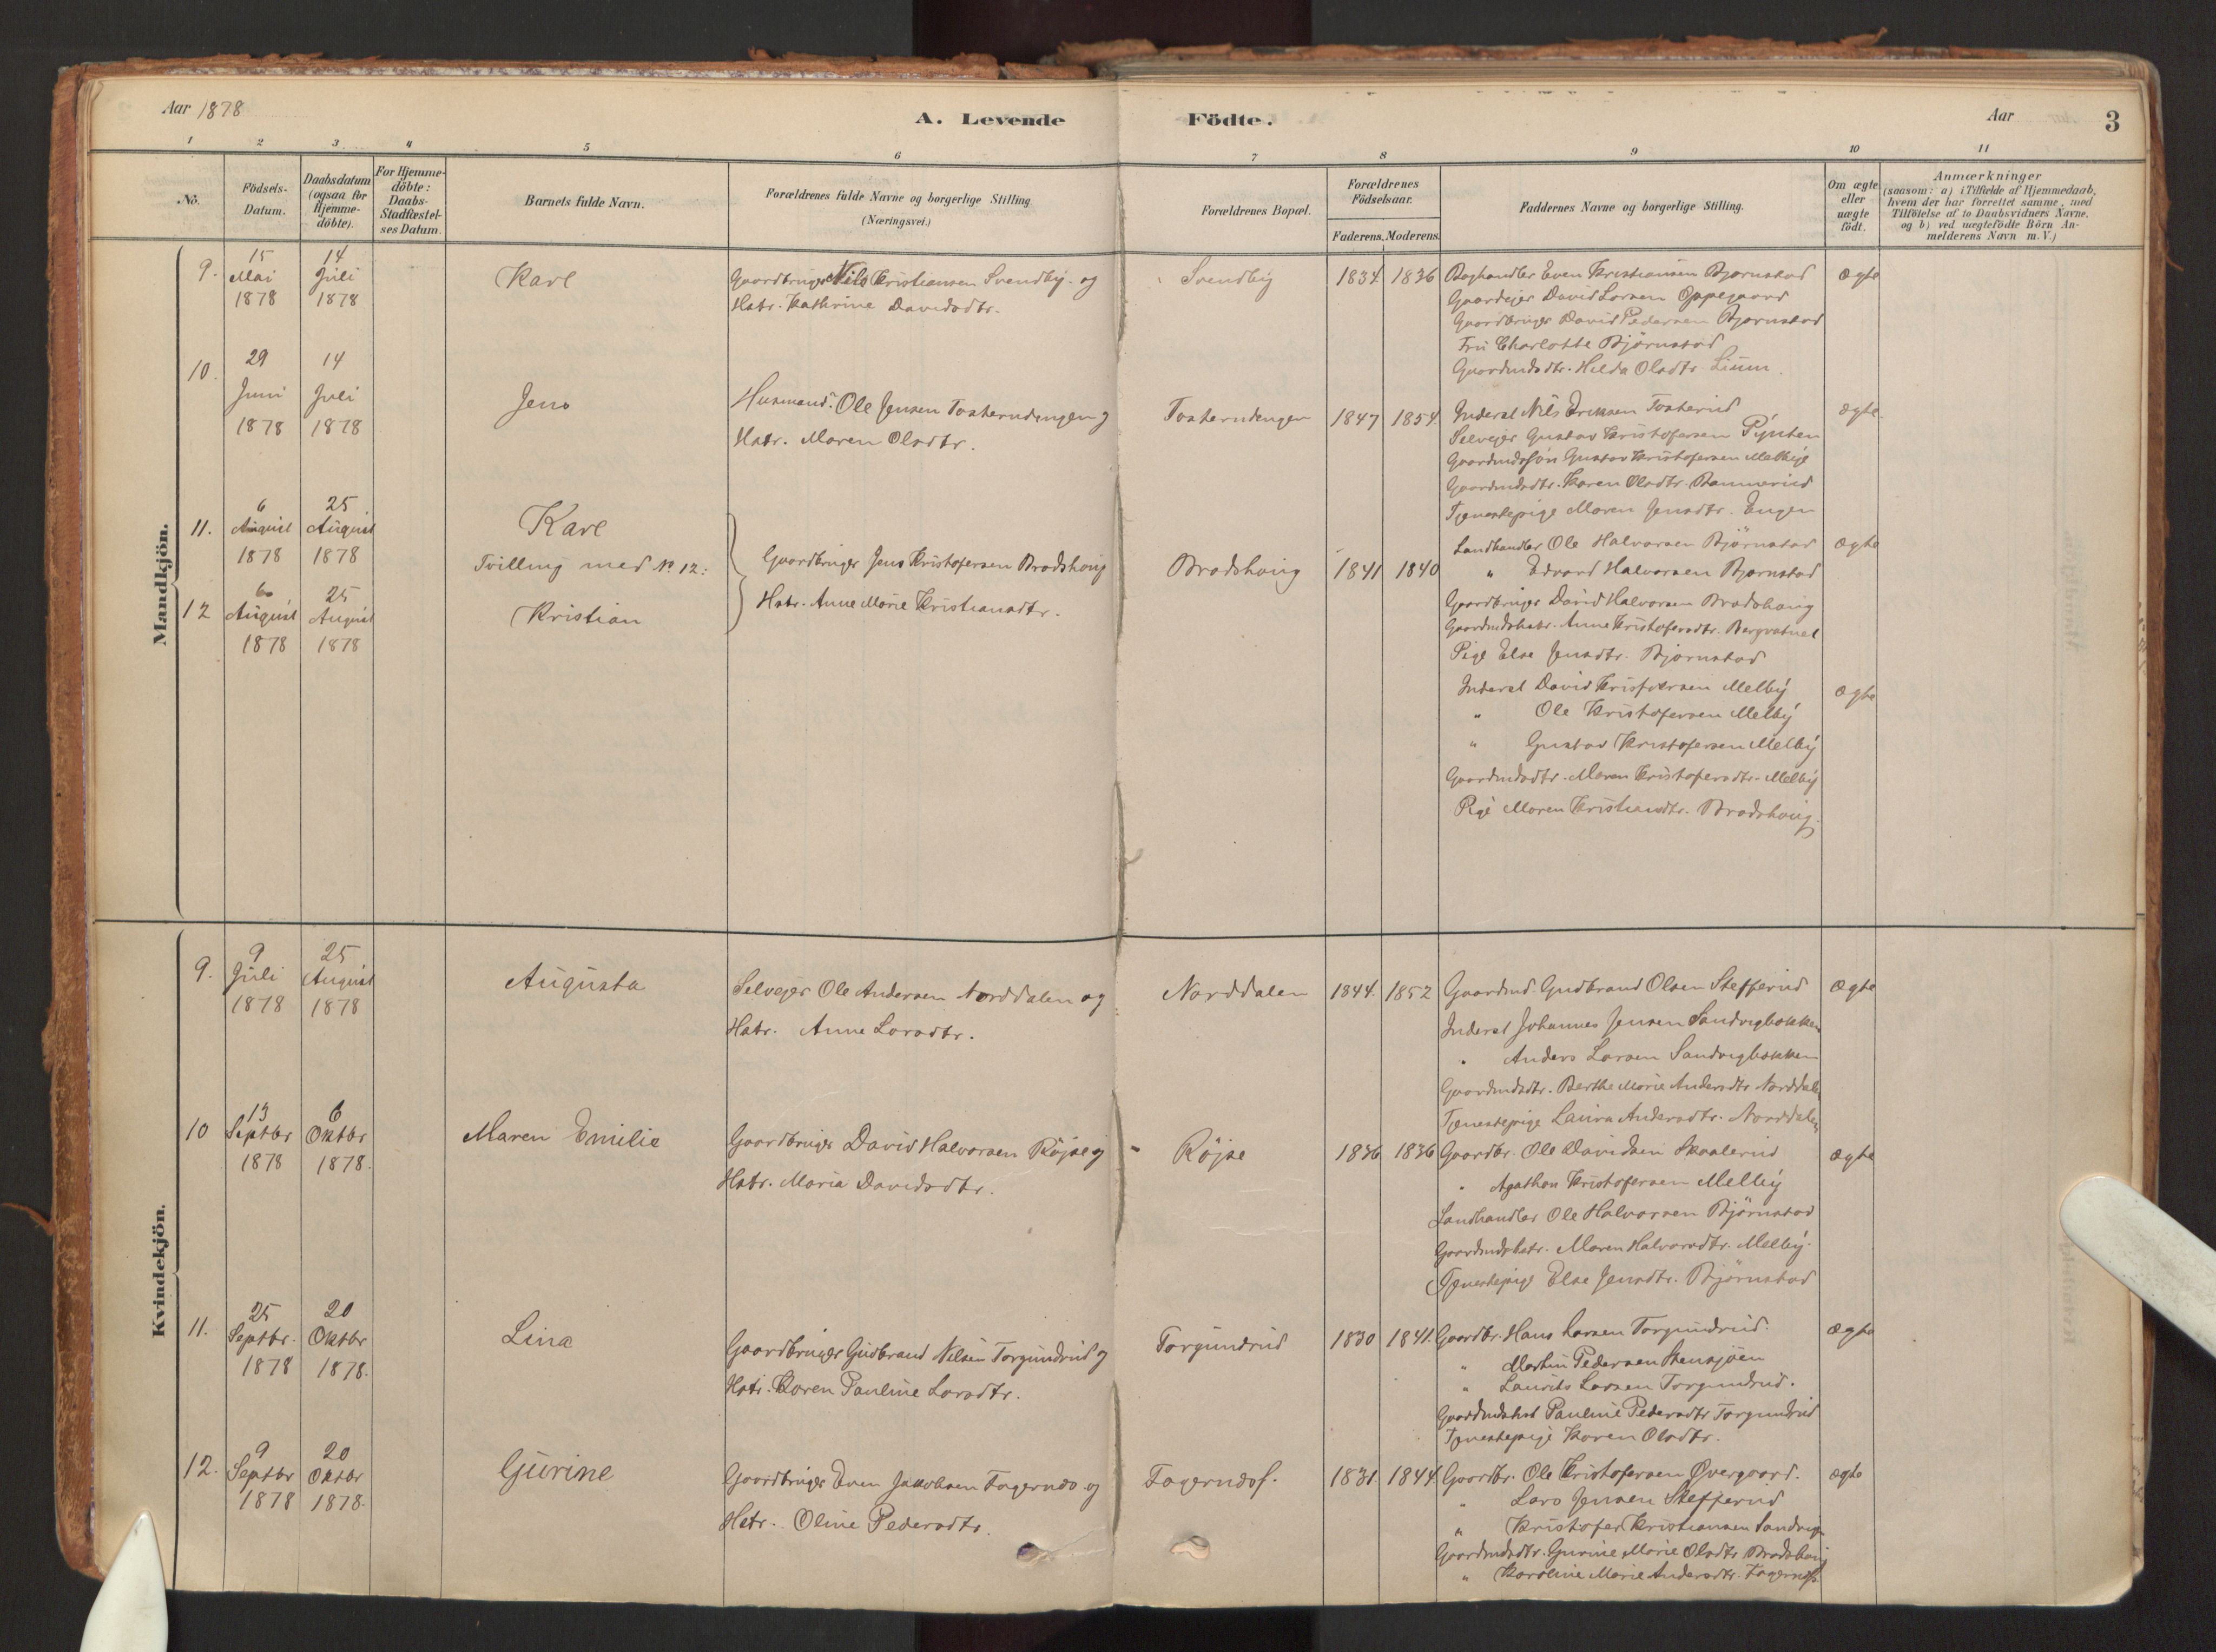 Aar 1878
A. Levende Födte.
Aar
3
1 2 3 4 5 6 7 8 9 10 11
No.
Födsels-Datum.
Daabsdatum (ogsaa for Hjemme-döbte).
For Hjemme-döbte: Daabs-Stadfæstel-ses Datum.
Barnets fulde Navn.
Forældrenes fulde Navne og borgerlige Stilling. (Næringsvei.)
Forældrenes Bopæl.
Forældrenes Födselsaar.
Faderens. Moderens.
Faddernes Navne og borgerlige Stilling.
Om ægte eller uægte födt.
Anmærkninger
(saasom: a) i Tilfælde af Hjemmedaab,
hvem der har forrettet samme, med
Tilföielse af to Daabsvidners Navne,
og b) ved uægtefödte Börn An-
melderens Navn m. V.)
Mandkjön.
9. 15 Mai 1878 14 Juli 1878 Karl
Gaardbruger Nils Kristiansen Svendby og
Hstr. Kathrine Davidsdtr.
Svendby 1834 1836
Boghandler Even Kristiansen Bjørnstad ægte
Gaardejer David Larsen Oppegaard
Gaardbruger David Pedersen Bjørnstad
Fru Charlotte Bjørnstad
Gaardmdsdtr. Hilda Olsdtr. Lium.
10. 29 Juni 1878 14 Juli 1878 Jens
Husmand. Ole Jensen Tosterudengen og
Hstr. Maren Olsdtr.
Tosterudengen 1847 1854
Inderst Nils Eriksen Tosterud ægte
Selvejer Gustav Kristofersen Pynten
Gaardmdssön Gustav Kristofersen Melby
Gaardmdsdtr. Karen Olsdtr. Rammerud
Tjenestepige Maren Jensdtr. Engen
11. 6 August 1878 25 August 1878 Karl
Tvilling med No 12:
Gaardbruger Jens Kristofersen Brodshoug
Hstr. Anne Marie Kristiansdtr.
Brodshoug 1841 1840
Landhandler Ole Halvorsen Bjørnstad ægte
" Edvard Halvorsen Bjørnstad
Gaardbruger David Halvorsen Brodshoug
Gaardmdshstr. Anne Kristofersdtr.
Pige Else Jensdtr. Bjørnstad
12 6 August 1878 25 August 1878 Kristian
Inderst David Kristofersen Melby ægte
" Ole Kristofersen Melby
" Gustav Kristofersen Melby
Gaardmdsdtr. Maren Kristofersdtr. Melby
Pige Maren Kristiansdtr. Brodshoug.
Kvindekjön.
9. 9 Juli 1878 25 August 1878 Augusta
Selvejer Ole Andersen Norddalen og
Hstr. Anne Larsdtr.
Norddalen 1844. 1852
Gaardmd. Gudbrand Olsen Stefferud ægte
Inderst Johannes Jensen Sandvigbakken
" Anders Larsen Sandvigbakken
Gaardmdsdtr. Berthe Marie Andersdtr Norddalen
Tjenestepige Laura Andersdtr. Norddalen
10 13 Septbr 1878 6 Oktbr 1878. Maren Emilie
Gaardbruger David Halvorsen Röjse og
Hstr. Maria Davidsdtr.
Röjse 1836 1836
Gaardbr. Ole Davidsen Skaalerud ægte
" Agathon Kristofersen Melby
Landhandler Ole Halvorsen Bjørnstad
Gaardmdshstr. Maren Halvorsdtr. Melby.
Tjenestepige Else Jensdtr. Bjørnstad
11. 25 Septbr. 1878 20 Oktbr 1878. Lina
Gaardbruger Gudbrand Nilsen Torgundrud og
Hstr. Karen Pauline Larsdtr.
Torgundrud 1830 1841.
Gaardbr. Hans Larsen Torgundrud. ægte
" Martin Pedersen Stensjöen
" Laurits Larsen Torgundrud.
Gaardmdshst Pauline Pedersdtr Torgundrud
Tjenestepige Karen Olsdtr.
12. 9 Septbr 1878 20 Oktbr 1878. Gurine
Gaardbruger Even Jakobsen Fagernæs og
Hstr. Oline Pedersdtr.
1831. 1844
Gaardbr. Ole Kristofersen Øvergaard. ægte
" Lars Jensen Stefferud
" Kristofer Kristiansen Sandvig
Gaardmdsdtr. Gurine Marie Olsdtr Brodshoug
" Karoline Marie Andersdtr.